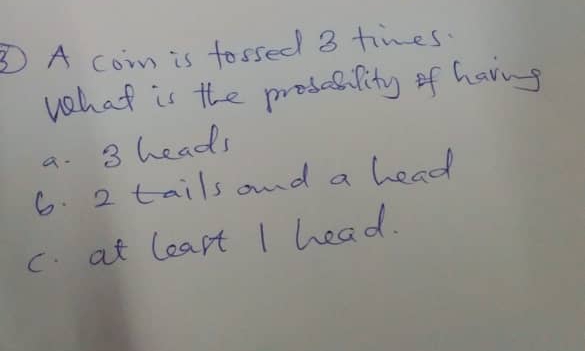 3) A coin is tossed 3 times.
What is the probability of having
a. 3 heads
b. 2 tails and a head
c. at least 1 head.